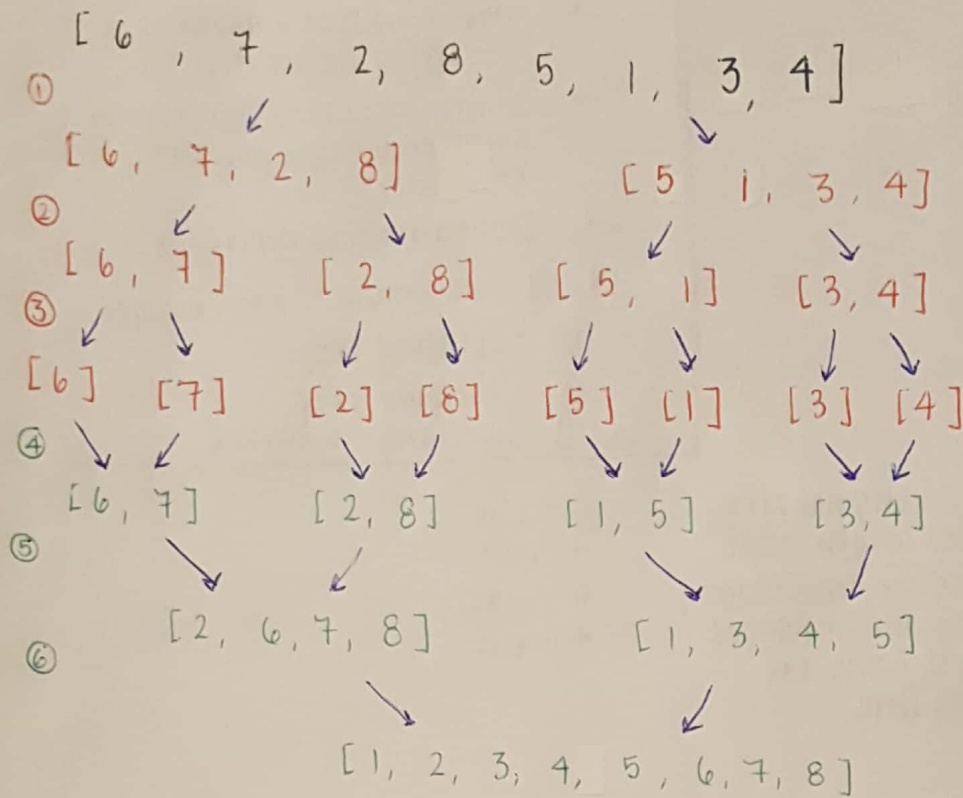 [ 6 , 7 , 2, 8, 5, 1, 3, 4 ]
①
[ 6, 7, 2, 8] [ 5 1, 3, 4 ]
②
[ 6, 7 ] [ 2, 8 ] [ 5, 1 ] [3, 4 ]
③
[6] [7] [2] [8] [5] [1] [3] [4]
④
[6, 7 ] [ 2, 8 ] [ 1, 5 ] [3,4 ]
⑤
[ 2, 6, 7, 8 ] [ 1, 3, 4, 5 ]
⑥
[ 1, 2, 3, 4, 5, 6, 7, 8 ]